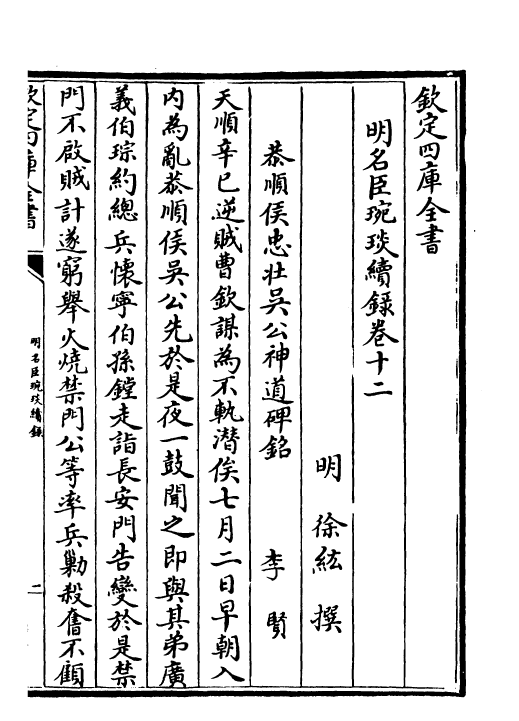 欽定四庫全書
明名臣琬琰續錄卷十二
明 徐紘 撰
恭順侯忠壯吳公神道碑銘 李賢
天順辛巳逆賊曹欽謀為不軌潛俟七月二日早朝入
内為亂恭順侯吳公先於是夜一鼓聞之即與其弟廣
義伯琮約總兵懷寧伯孫鏜走詣長安門告變於是禁
門不啟賊計遂窮舉火燒禁門公等率兵剿殺奮不顧
欽定四庫全書
明名臣琬琰續錄
二